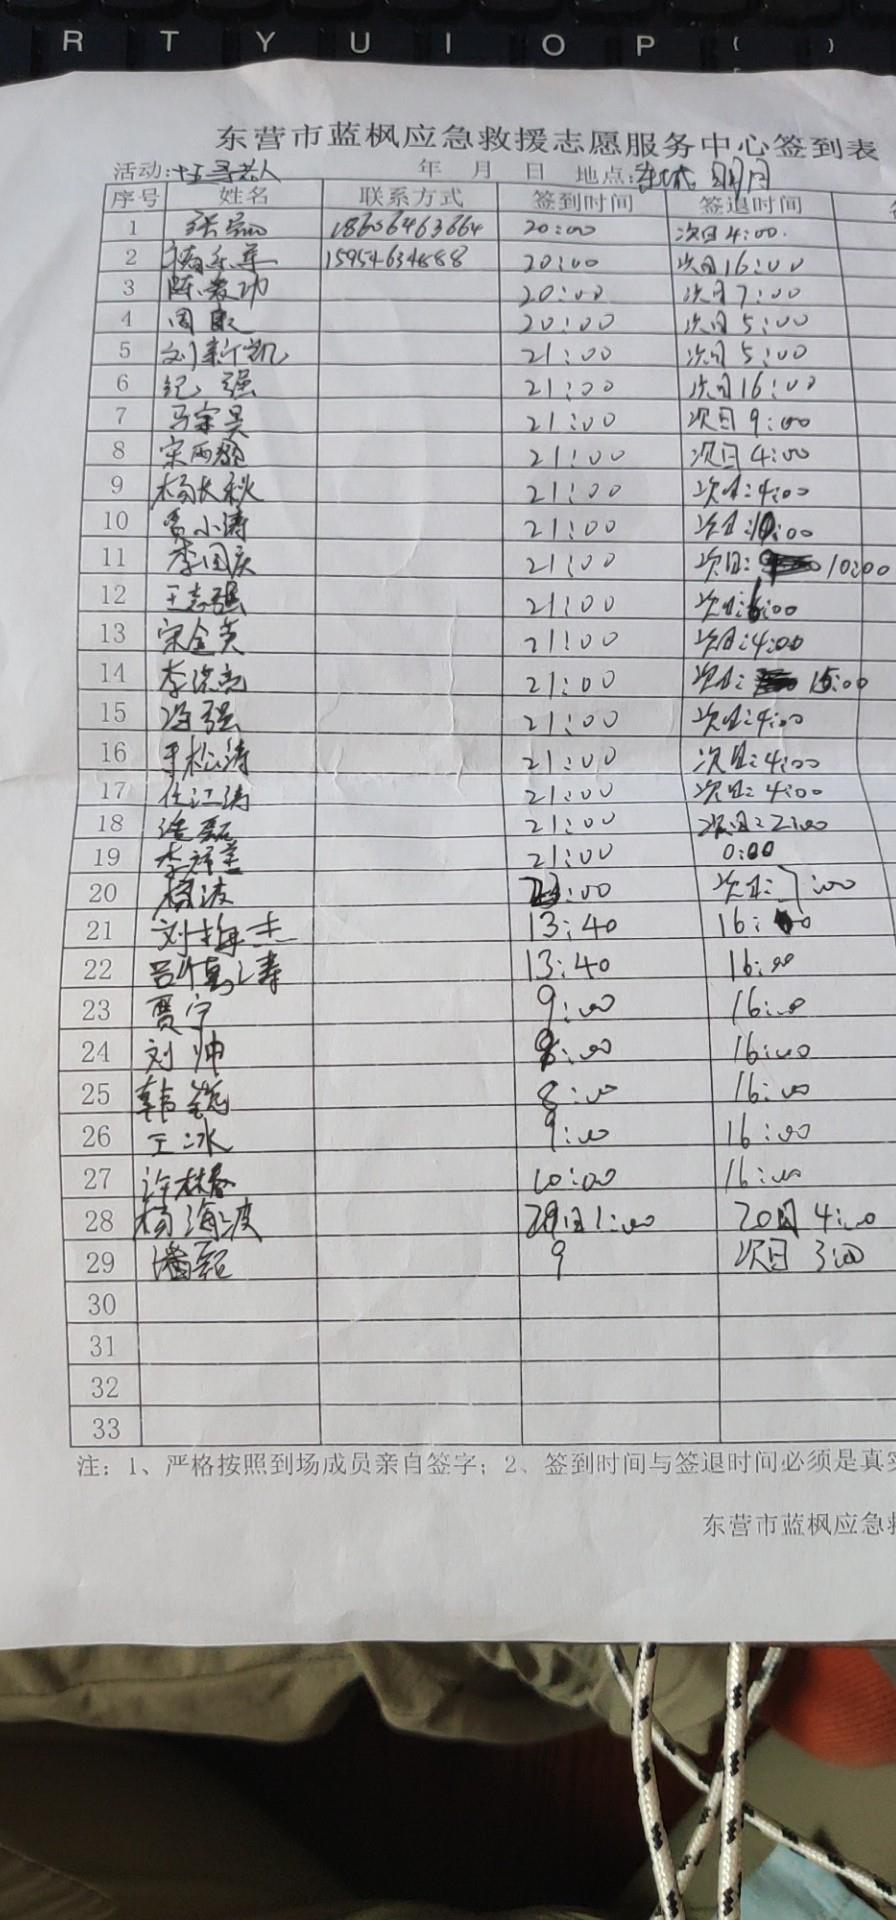 R T Y U I O P
东营市蓝枫应急救援志愿服务中心签到表
活动: 寻老人 年 月 日 地点:
序号 姓名 联系方式 签到时间 签退时间
1 18606463664 20:00 次日4:00
2 15954634888 20:00 次日16:00
3 陈发功 20:00 次日7:00
4 周 20:00 次日5:00
5 刘新凯 21:00 次日5:00
6 纪强 21:00 次日16:00
7 马宗昊 21:00 次日9:00
8 21:00 次日4:00
9 杨长秋 21:00 次日:4:00
10 贾小涛 21:00 次日:10:00
11 李国庆 21:00 次日: 10:00
12 王志强 21:00 次日:6:00
13 宋金英 21:00 次日:4:00
14 21:00 次日: 15:00
15 冯强 21:00 次日:4:00
16 李松涛 21:00 次日:4:00
17 任江涛 21:00 次日:4:00
18 徐磊 21:00 次日:2:00
19 21:00 0:00
20 杨波 23:00 次日:7:00
21 刘梅杰 13:40 16:00
22 13:40 16:00
23 贾宁 9:00 16:00
24 刘帅 8:00 16:00
25 韩 8:00 16:00
26 王冰 9:00 16:00
27 许林春 10:00 16:00
28 杨海波 20日1:00 20日4:00
29 潘 9 次日3:00
30
31
32
33
注: 1、严格按照到场成员亲自签字; 2、签到时间与签退时间必须是真实
东营市蓝枫应急救